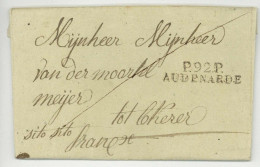 Mijnheer Mijnheer
van der moortel
P.92.P.
AUDENARDE
meijer
tot
cito cito
franco